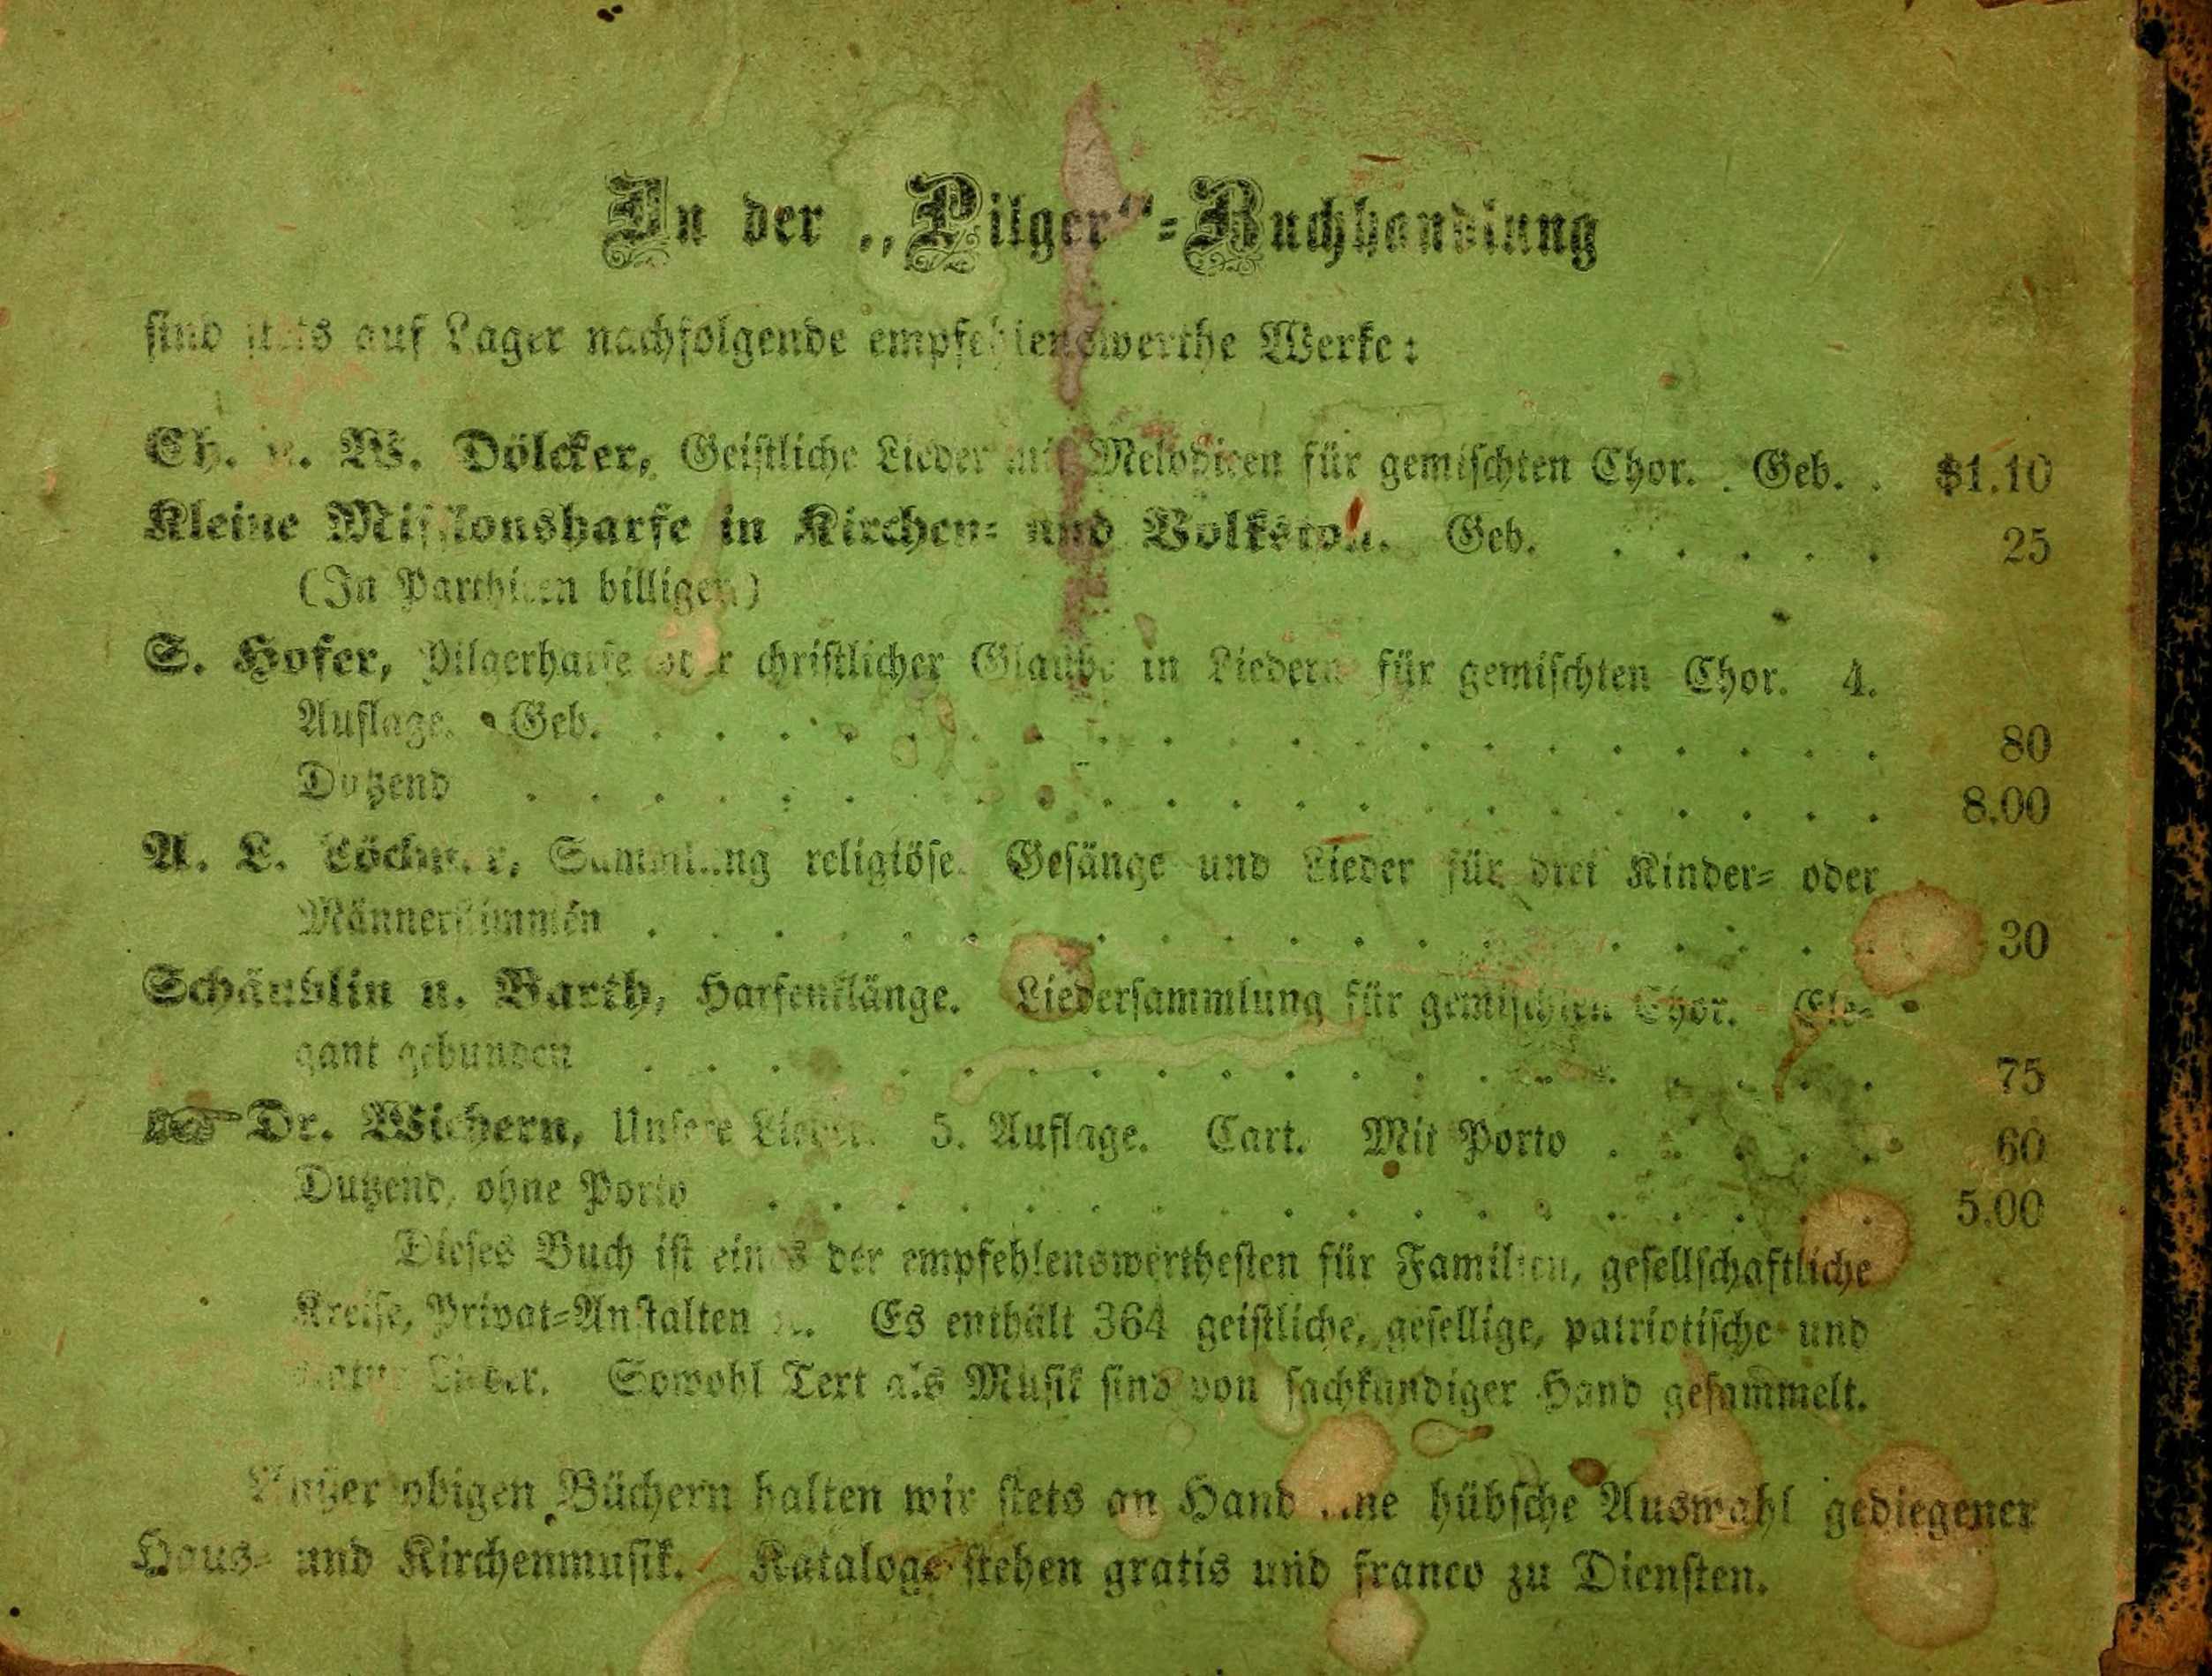 In der „Pilger“-Buchhandlung
sind stets auf Lager nachfolgende empfehlenswerthe Werke:
Ch. u. W. Dölcker, Geistliche Lieder mit Melodieen für gemischten Chor. Geb. . $1.10
Kleine Missionsharfe in Kirchen- und Volkston. Geb. . . . . . 25
(In Parthieen billiger.)
S. Hofer, Pilgerharfe oder christlicher Glaube in Liedern für gemischten Chor. 4.
Auflage. Geb. . . . . . . . . . . . . . . . . . . . . 80
Dutzend . . . . . . . . . . . . . . . . . . . . . . 8.00
A. L. Sammlung religiöse Gesänge und Lieder für drei Kinder- oder
Männerstimmen . . . . . . . . . . . . . . . . . . . . 30
Schäublin u. Barth, Harfenklänge. Liedersammlung für gemischten Chor. Ele-
gant gebunden . . . . . . . . . . . . . . . . . . . . 75
☞ Dr. Wichern, Unsere Lieder. 5. Auflage. Cart. Mit Porto . . . . . 60
Dutzend, ohne Porto . . . . . . . . . . . . . . . . . . 5.00
Dieses Buch ist eines der empfehlenswerthesten für Familien, gesellschaftliche
Kreise, Privat-Anstalten Es enthält 364 geistliche, gesellige, patriotische und
Lieder. Sowohl Text als Musik sind von sachkundiger Hand gesammelt.
Außer obigen Büchern halten wir stets an Hand eine hübsche Auswahl gediegener
Haus- und Kirchenmusik. Kataloge stehen gratis und franco zu Diensten.